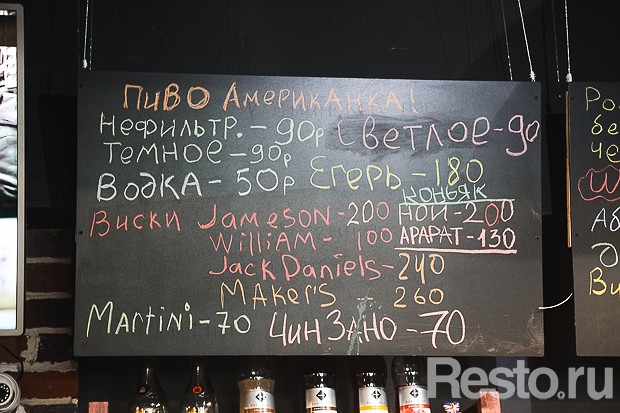 ПИВО АМЕРИКАНКА!
НЕФИЛЬТР. - 90р СВЕТЛОЕ - 90
ТЕМНОЕ - 90р
ВОДКА - 50р ЕГЕРЬ - 180
КОНЬЯК
ВИСКИ JAMESON - 200 НОЙ - 200
WILLIAM - 100 АРАРАТ - 130
JACK DANIELS - 240
MAKER'S - 260
MARTINI - 70 ЧИНЗАНО - 70
Resto.ru